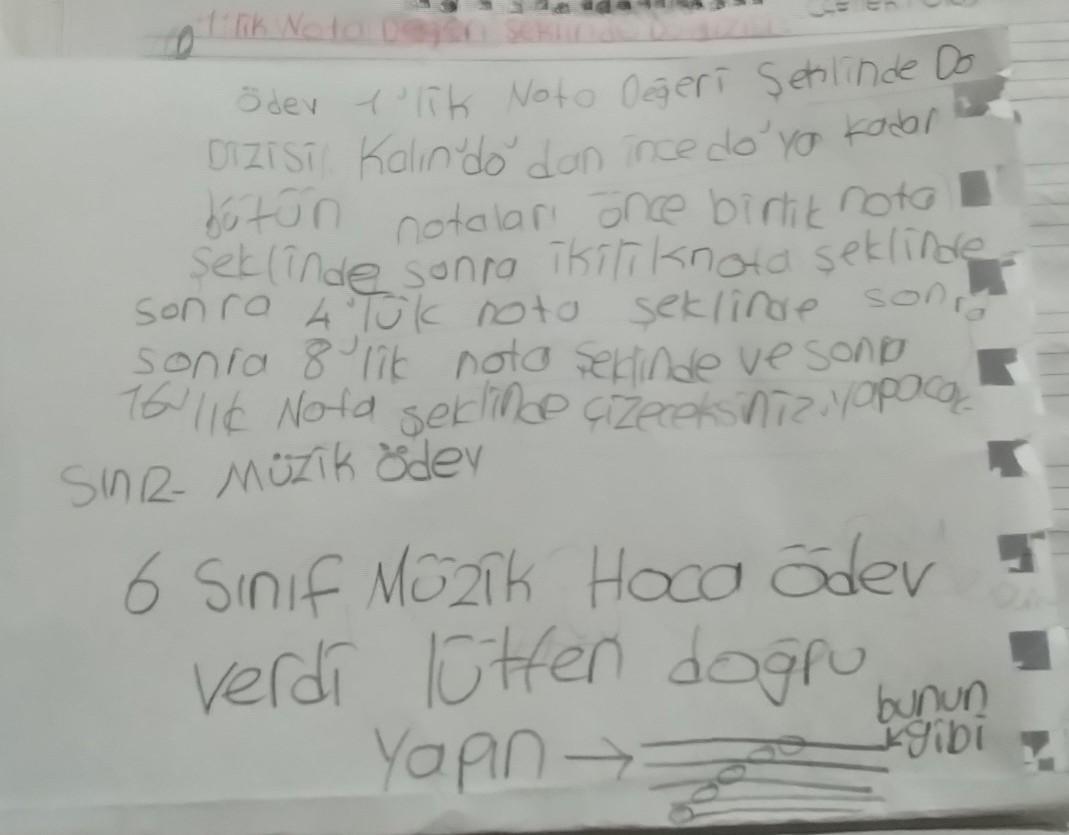 1'lik Nota Değeri Şeklinde Do Dizisi
ödev 1'lik Nota Değeri Şeklinde Do
Dizisi Kalın'do'dan ince do'ya kadar
bütün notaları önce birlik nota
şeklinde sonra ikilik nota şeklinde
sonra 4'lük nota şeklinde sonra
sonra 8'lik nota şeklinde ve sonra
16'lık Nota şeklinde çizeceksiniz. yapaca-
sınız- Müzik ödev
6 Sınıf Müzik Hoca ödev
verdi lütfen doğru
bunun
yapın → gibi